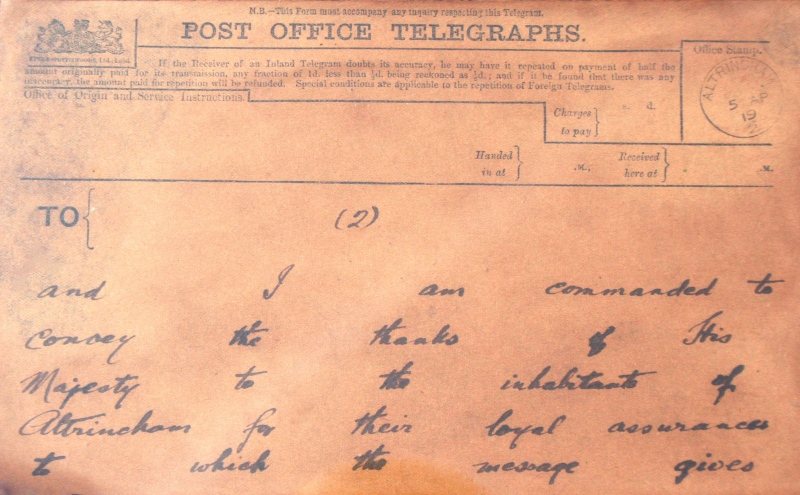 N.B.—This Form must accompany any inquiry respecting this Telegram.
POST OFFICE TELEGRAPHS.
If the Receiver of an Inland Telegram doubts its accuracy, he may have it repeated on payment of half the
amount originally paid for its transmission, any fraction of 1d. less than ½d. being reckoned as ½d.; and if it be found that there was any
inaccuracy, the amount paid for repetition will be refunded. Special conditions are applicable to the repetition of Foreign Telegrams.
Office of Origin and Service Instructions.
Office Stamp.
ALTRIN
5 AP
19
Charges
to pay
s. d.
Handed
in at
.M.,
Received
here at
.M.
TO
(2)
and I am commanded to
convey the thanks of His
Majesty to the inhabitants of
Altrincham for their loyal assurances
to which the message gives